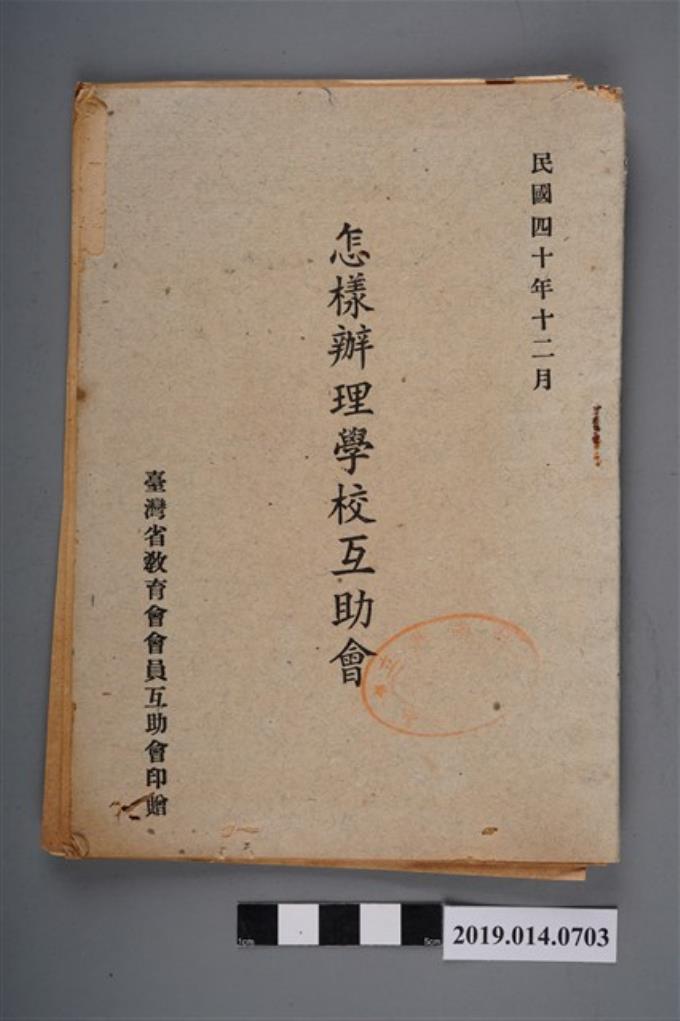 民國四十年十二月
怎樣辦理學校互助會
臺灣省教育會會員互助會印贈
1cm
5cm
2019.014.0703